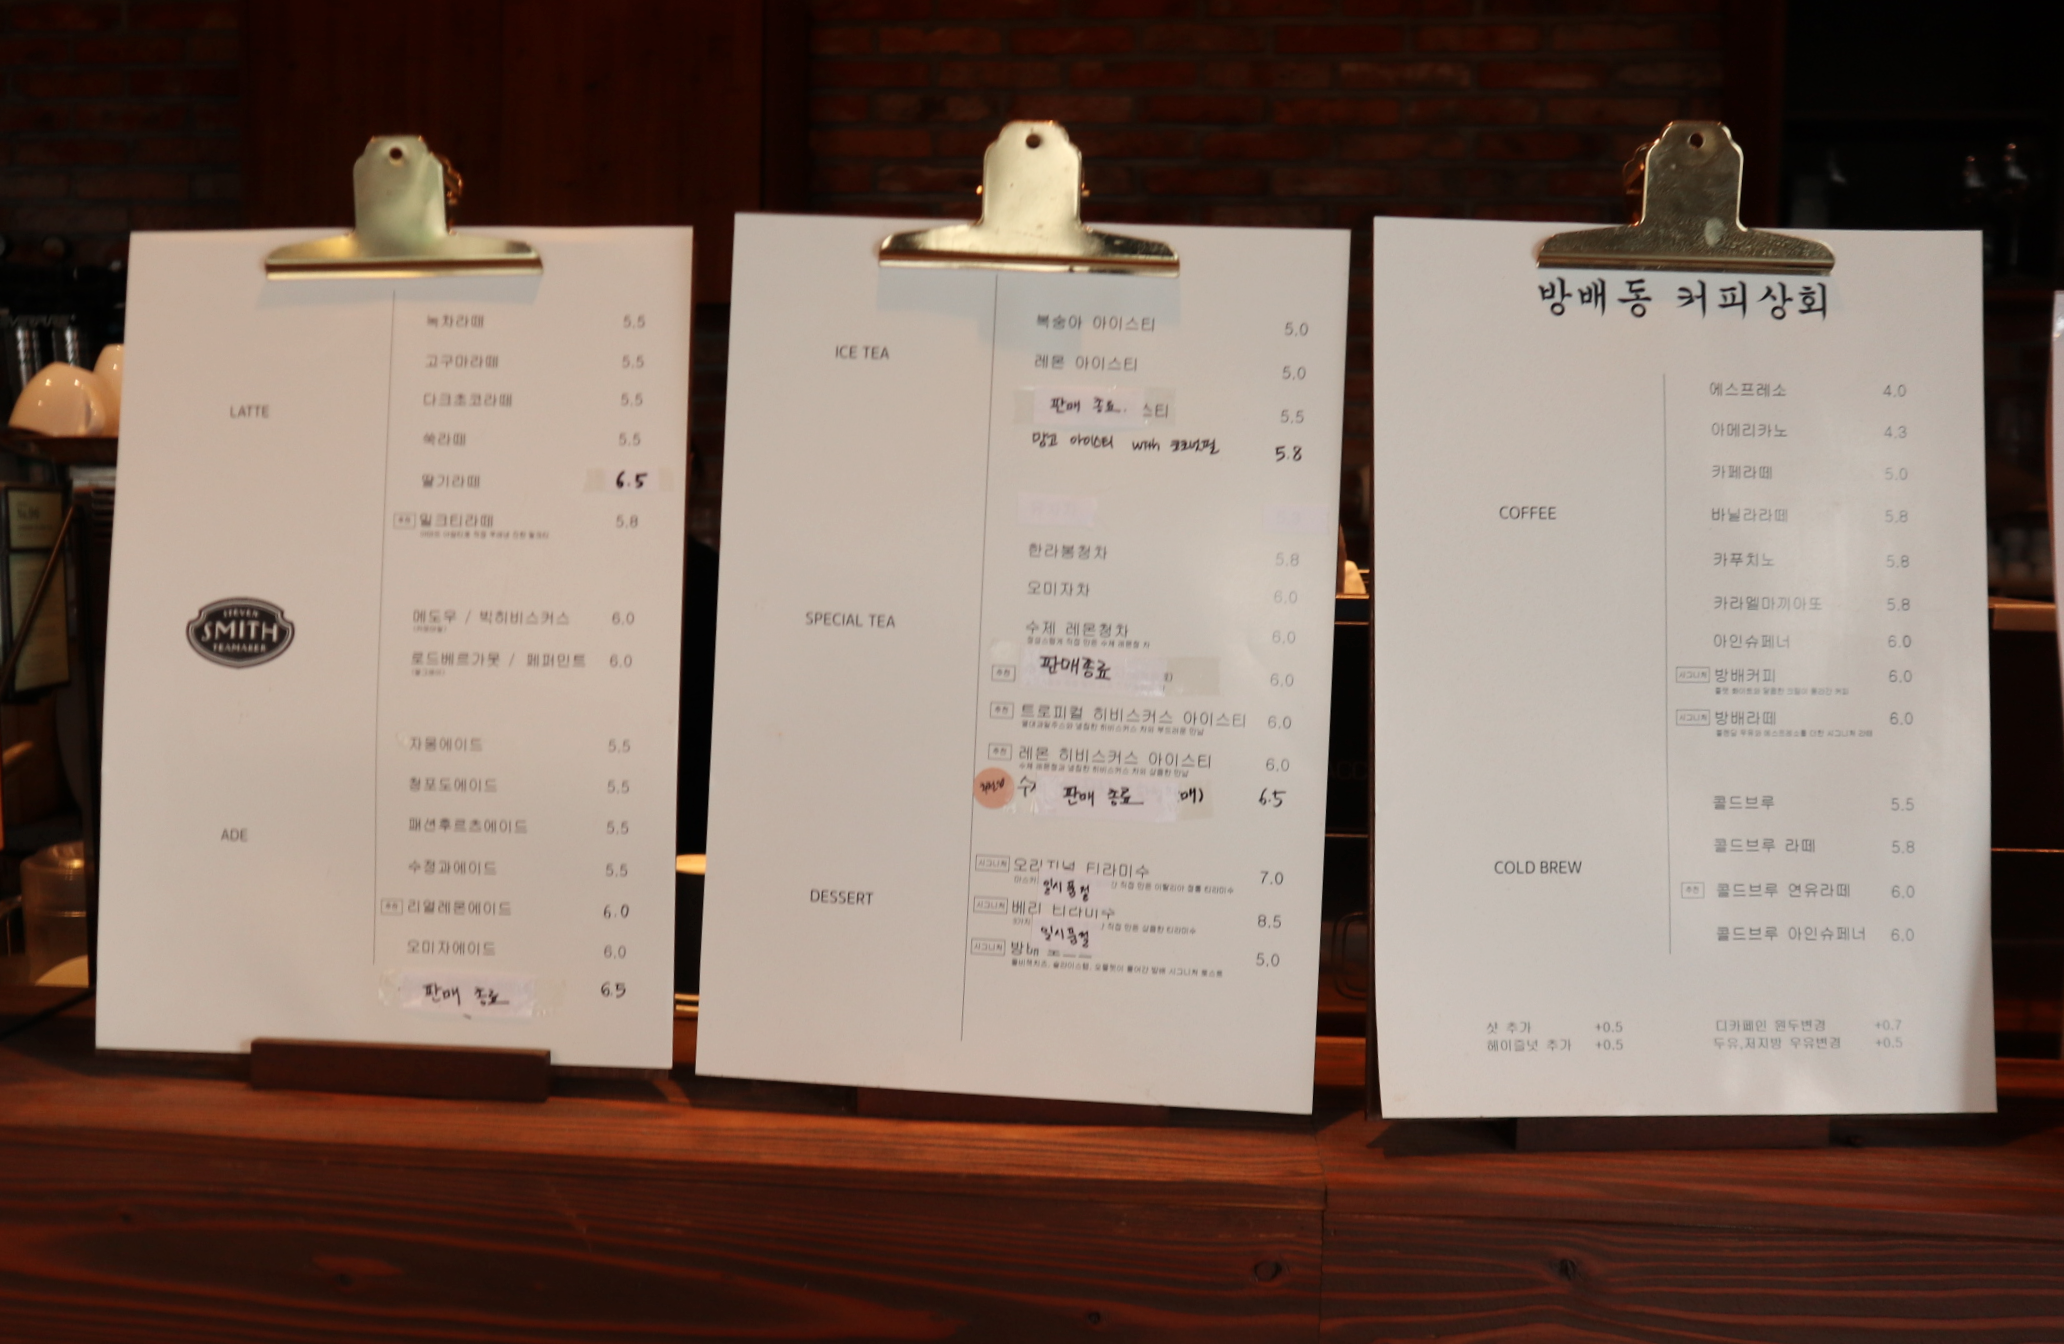 LATTE
녹차라떼 5.5
고구마라떼 5.5
다크초코라떼 5.5
쑥라떼 5.5
딸기라떼 6.5
추천 밀크티라떼 5.8
STEVEN
SMITH
TEAMAKER
메도우 / 빅히비스커스 6.0
로드베르가못 / 페퍼민트 6.0
ADE
자몽에이드 5.5
청포도에이드 5.5
패션후르츠에이드 5.5
수정과에이드 5.5
추천 리얼레몬에이드 6.0
오미자에이드 6.0
판매 종료 6.5
ICE TEA
복숭아 아이스티 5.0
레몬 아이스티 5.0
판매 종료. 스티 5.5
망고 아이스티 with 코코넛펄 5.8
SPECIAL TEA
한라봉청차 5.8
오미자차 6.0
수제 레몬청차 6.0
방금스럽게 직접 만든 수제 레몬청 차
추천 판매종료 6.0
추천 트로피컬 히비스커스 아이스티 6.0
추천 레몬 히비스커스 아이스티 6.0
수제 레몬청과 냉침한 히비스커스 차의 상큼한 만남
판매 종료 매) 6.5
DESSERT
시그니처 오리지널 티라미수 7.0
일시품절 직접 만든 이탈리아 정통 티라미수
시그니처 베리 티라미수 8.5
일시품절 직접 만든 상큼한 티라미수
시그니처 방배 5.0
방배동 커피상회
COFFEE
에스프레소 4.0
아메리카노 4.3
카페라떼 5.0
바닐라라떼 5.8
카푸치노 5.8
카라멜마끼아또 5.8
아인슈페너 6.0
시그니처 방배커피 6.0
시그니처 방배라떼 6.0
COLD BREW
콜드브루 5.5
콜드브루 라떼 5.8
추천 콜드브루 연유라떼 6.0
콜드브루 아인슈페너 6.0
샷 추가 +0.5
헤이즐넛 추가 +0.5
디카페인 원두변경 +0.7
두유,저지방 우유변경 +0.5